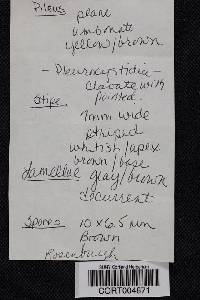 Pileus plane
umbonate
yellow/brown
- Pleurocystidia -
Clavate with
pointed.
Stipe
7mm wide
striped
whitish/apex
brown/base
Lamellae gray/brown
decurrent
Spores 10 x 6.5 µm
Brown
SUNY Cortland Herbarium
CORT004671